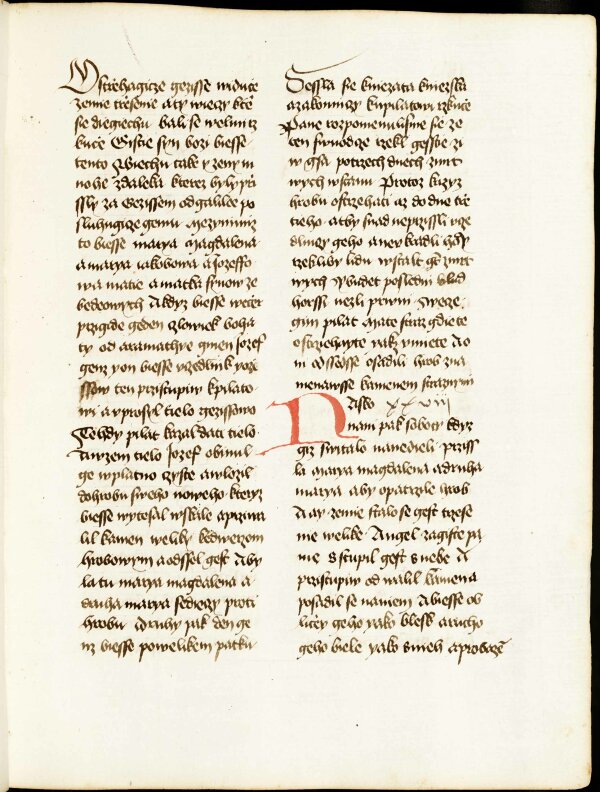 Ostrzehagicze gezisse widuce
zemie trzesenie a ty wieczy ktere
sie diegiechu bali se welmi rz
kuce Giste syn bozi biesse
tento Biechu tak y zeny m
nohe zdaleka kterez byly przi
ssly za Gezissem od galilee po
sluhugicze gemu Mezymimiz
to biesse marya magdalena
a marya iakobowa a Jozeffo
wa matie a matka synow ze
bedeowych A kdyz biesse weczer
przigide geden czlowiek boha
ty od aramathye gmen Jozef
genz yon biesse vczedlnik yezi
ssow ten przistupiw kpilato
wi a vprosyl tielo gezissowo
Tehdy pilat kazal dati tielo
A wzem tielo Jozef obinul
ge wplatno czyste a wlozil
do hrobu sweho noweho kteryz
biesse wytesal wskale a przywa
lil kamen weliky kedwerzom
hrobowym a odssel gest A by
la tu marya magdalena a
druha marya sedieczy proti
hrobu Druhy pak den ge
nz biesse powelikem patku
Sessla sie kniezata kniezska
a zakonniczy kupilatowi rzkuce
Pane rozpomenulisme sie ze
ten swodcze rzekl gesstie zi
w gsa potrzech dnech zmrt
wych wstanu Protoz kazyz
hrobu ostrzehati az do dne trze
tieho at by snad neprzissli vcze
dlniczy geho a nevkradli ho y
rzekli by lidu wstalt gest zmrt
wych Y budet posledni blud
horssi nezli prwni Wecze
gim pilat Mate straz gdiete
ostrziehayte yakz vmiete A o
ni odssedsse osadili hrob zna
menawsse kamenem straznymi
Nasko xxviii
nam pak soboty kdyz
giz switalo nanedieli prziss
la marya magdalena a druha
marya aby opatrzyle hrob
A ay zemie stalo se gest trzese
nie welike Angel zagiste pa
nie sstupil gest snebe A
przistupiw odwalil kamena
posadil se naniem A biesse ob
liczey geho yako blesk a rucho
geho biele yako snieh a probazn